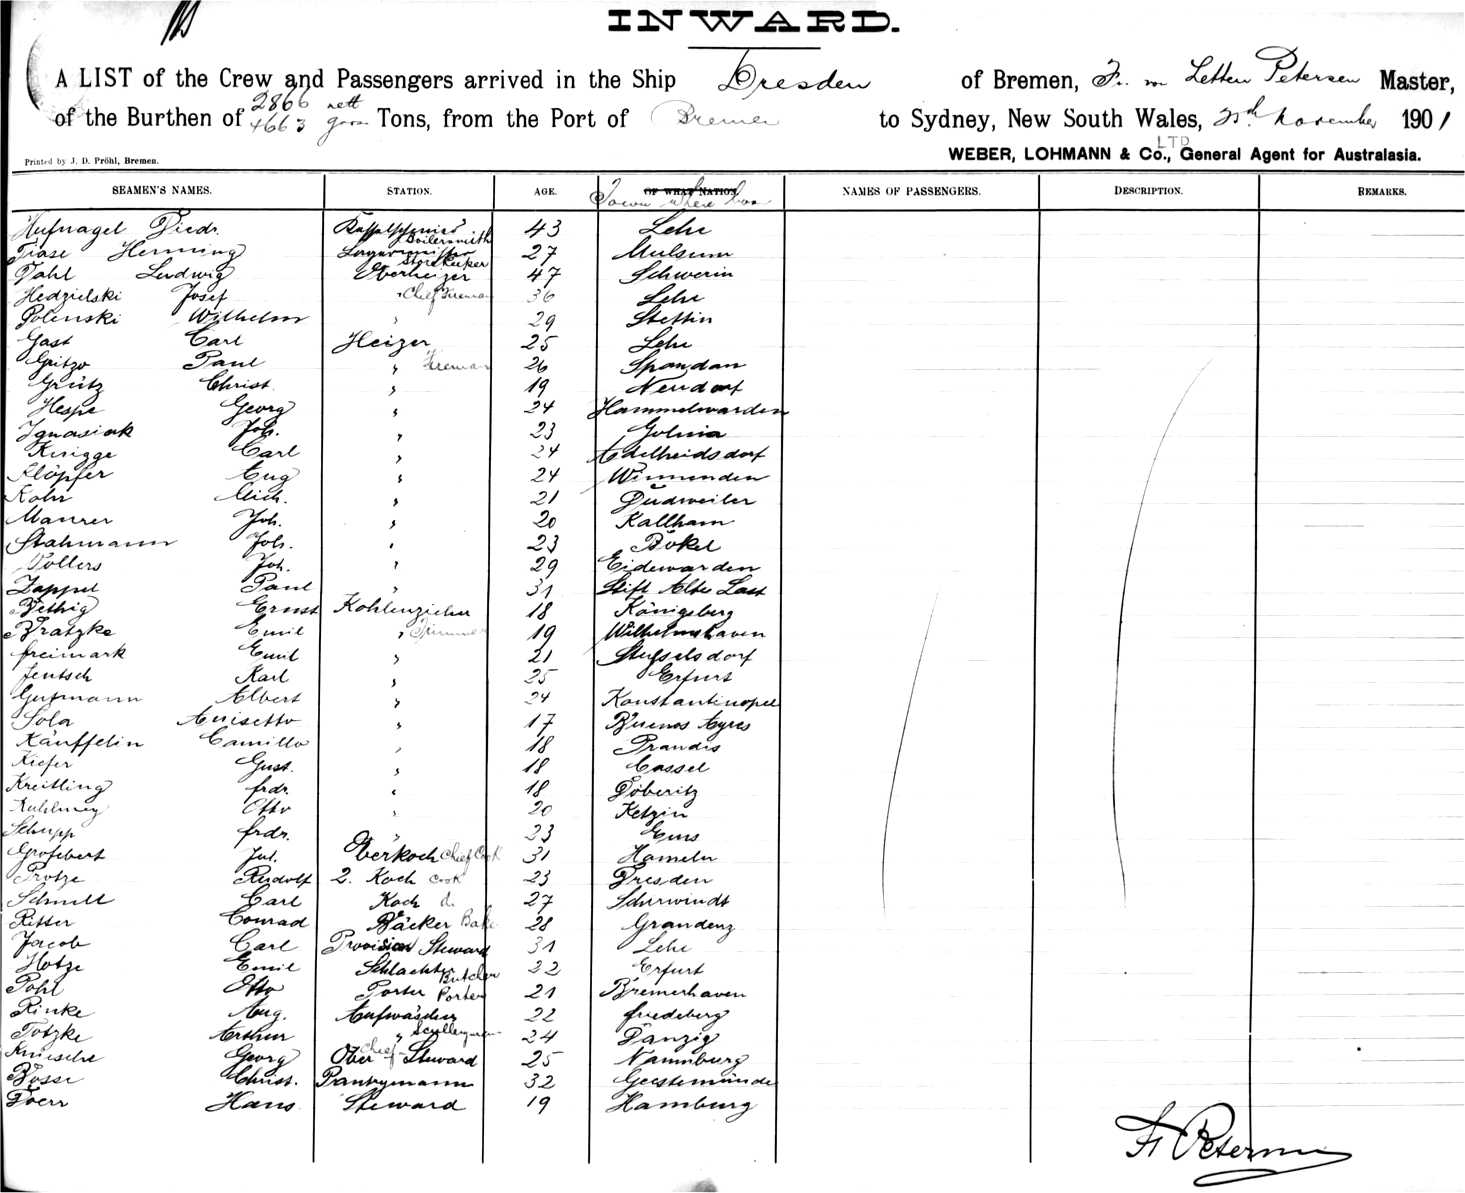 INWARD.
A LIST of the Crew and Passengers arrived in the Ship Dresden of Bremen, Fr. von Letten Petersen Master,
of the Burthen of 2866 nett 4663 gross Tons, from the Port of Bremen to Sydney, New South Wales, November 1901
Printed by J. D. Pröhl, Bremen.
WEBER, LOHMANN & Co., LTD General Agent for Australasia.
SEAMEN'S NAMES. STATION. AGE. OF WHAT NATION. Town where born NAMES OF PASSENGERS. DESCRIPTION. REMARKS.
Hufnagel Diedr. Kesselschmied Boilersmith 43 Lehe
Tiase Henning Lagermeister Storekeeper 27 Mulsum
Dahl Ludwig Oberheizer 47 Schwerin
Hedzielski Josef " Chief Fireman 36 Lehe
Polenski Wilhelm " 29 Stettin
Gast Carl Heizer 25 Lehe
Gritzo Paul " Fireman 26 Spandau
Grütz Christ. " 19 Neudorf
Hespe Georg " 24 Hammelwarden
Ignasiak Joh. " 23 Golnia
Knigge Carl " 24 Adelheidsdorf
Klöpfer Aug " 24 Winnenden
Kohr Mich. " 21 Dudweiler
Maurer Joh. " 20 Kallham
Stahmann Joh. " 23 Bokel
Tollers Joh. " 29 Eidewarden
Zappel Paul " 31 Stift Alte Last
Bethig Ernst Kohlenzieher 18 Königsberg
Bratzke Emil " Trimmer 19 Wilhelmshaven
Freimark Emil " 21
Jentsch Karl " 25 Erfurt
Gutmann Albert " 24 Konstantinopel
Sola Anisetto " 17 Buenos Ayres
Käuffelin Camillo " 18 Brandis
Kiefer Gust. " 18 Cassel
Kreitling frdr. " 18 Döberitz
Kuhlmey Otto " 20 Ketzin
Schupp frdr. " 23 Ems
Grosebert Jul. Oberkoch Chief Cook 31 Hameln
Protze Rudolf 2. Koch Cook 23 Dresden
Schmill Carl Koch d. 27 Schirwindt
Ritter Conrad Bäcker Bake 28 Graudenz
Jacob Carl Provision Steward 31 Lehe
Hotze Emil Schlachter Butcher 22 Erfurt
Pohl Otto Porter Porter 21 Bremerhaven
Rinke Aug. Aufwäscher 22 Friedeberg
Totzke Arthur " Sculleryman 24 Danzig
Kniesche Georg Ober Chief Steward 25 Naumburg
Bosse Christ. Pantrymann 32 Geestemünde
Doerr Hans Steward 19 Hamburg
Fr Petersen